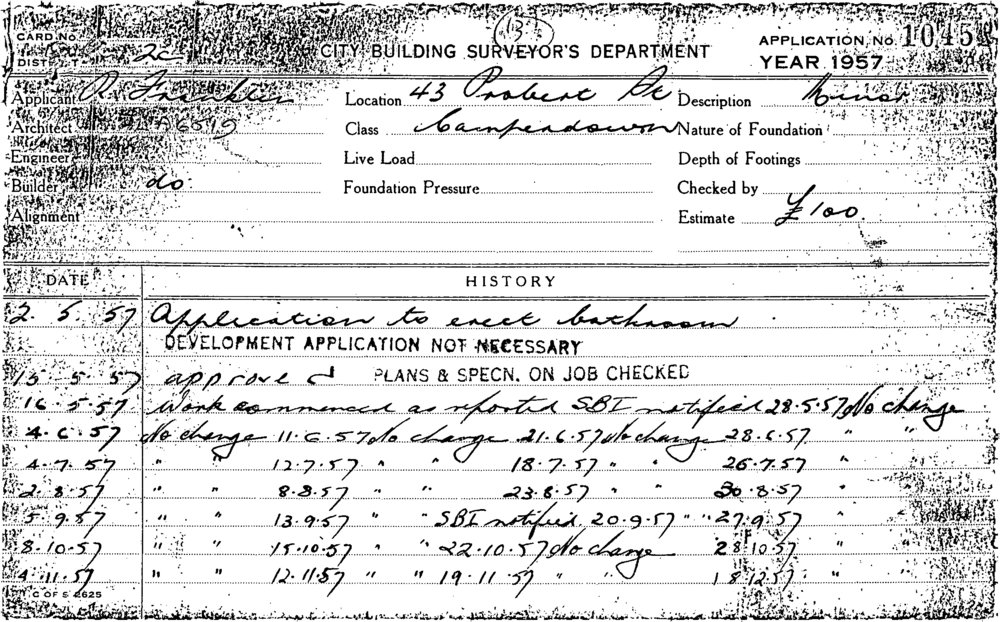 CARD No
DIST. T.
2c
13
CITY BUILDING SURVEYOR'S DEPARTMENT
APPLICATION No. 1045
YEAR 1957
Applicant Location 43 Probert St Description Minor
Architect Class Camperdown Nature of Foundation
Engineer Live Load Depth of Footings
Builder do. Foundation Pressure Checked by
Alignment Estimate £100.
DATE HISTORY
2. 5. 57 Application to erect bathroom
DEVELOPMENT APPLICATION NOT NECESSARY
15. 5. 57 approve PLANS & SPECN. ON JOB CHECKED
16. 5. 57 Work commenced as reported SBI notified 28.5.57 No change
4. 6. 57 No change 11.6.57 No change 21.6.57 No change 28.6.57 " "
4. 7. 57 " " 12.7.57 " " 18.7.57 " " 26.7.57 "
2. 8. 57 " " 8.8.57 " " 23.8.57 " " 30.8.57 " "
5. 9. 57 " " 13.9.57 " " SBI notified 20.9.57 " " 27.9.57 "
8.10.57 " " 15.10.57 " " 22.10.57 No change 28.10.57 " "
4.11.57 " " 12.11.57 " " 19.11.57 " " 18.12.57 " "
C OF S 2625